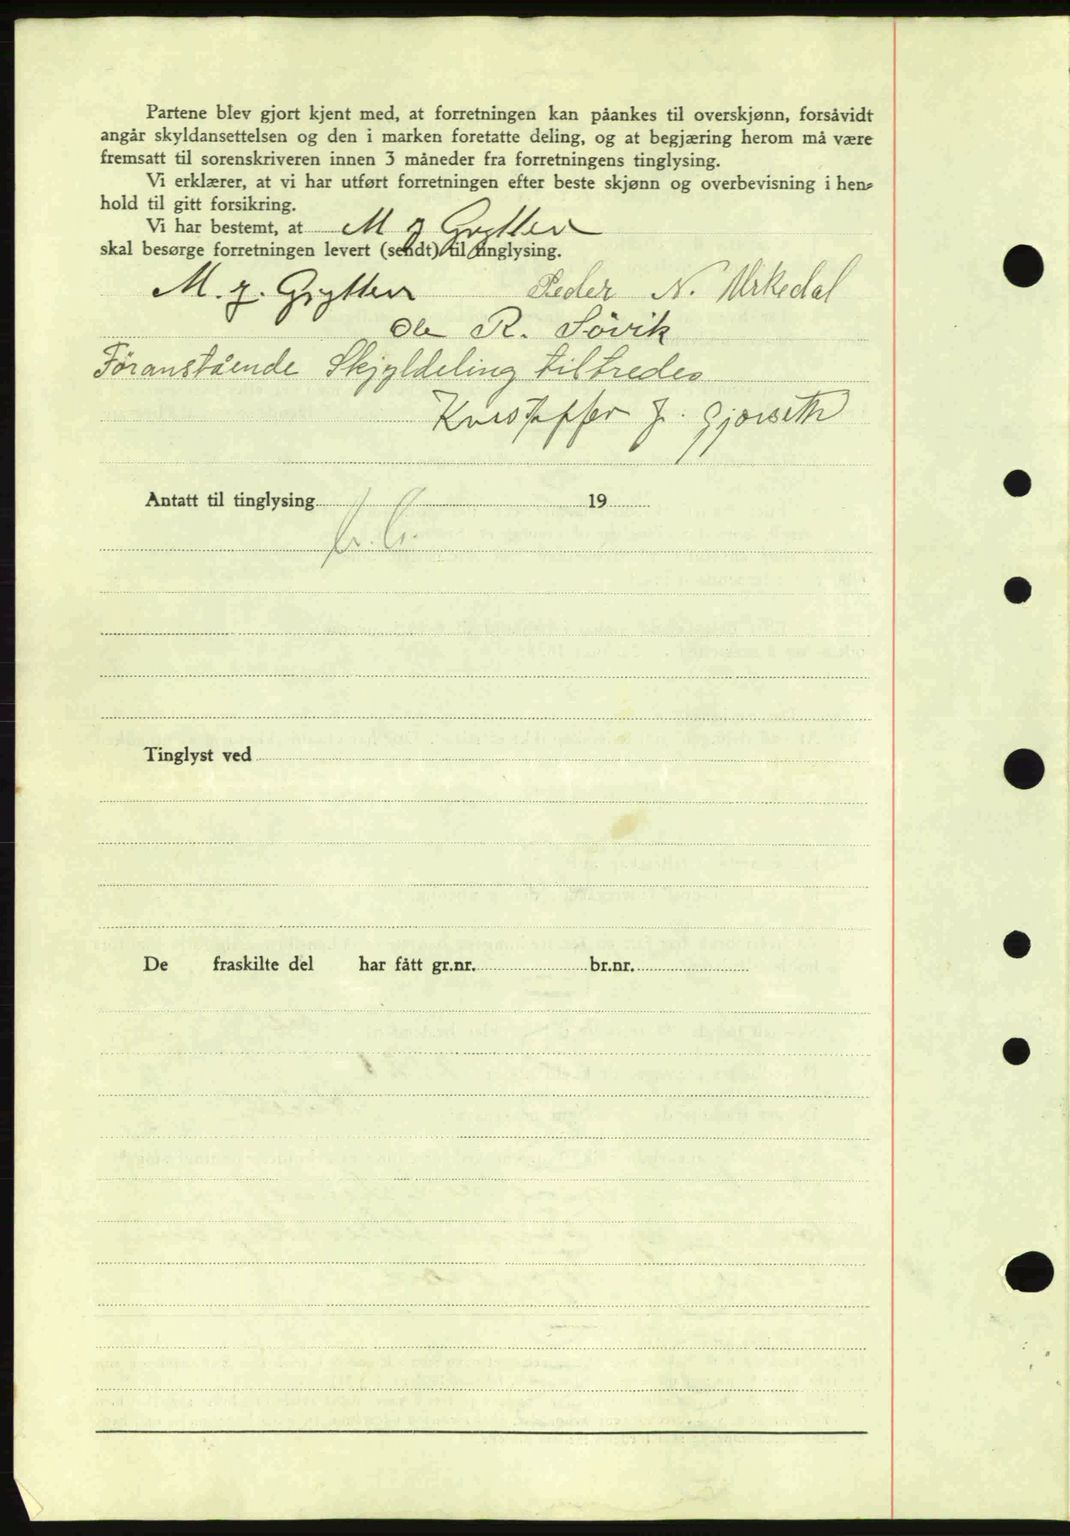 Partene blev gjort kjent med, at forretningen kan påankes til overskjønn, forsåvidt
angår skyldansettelsen og den i marken foretatte deling, og at begjæring herom må være
fremsatt til sorenskriveren innen 3 måneder fra forretningens tinglysing.
Vi erklærer, at vi har utført forretningen efter beste skjønn og overbevisning i hen-
hold til gitt forsikring.
Vi har bestemt, at M J Grytten
skal besørge forretningen levert (sendt) til tinglysing.
M. J. Grytten Peder N. Urkedal
Ole R. Søvik
Føranstående Skjyldeling tiltredes
Kristoffer J. Gjørseth
Antatt til tinglysing 19
Tinglyst ved
De fraskilte del har fått gr.nr. br.nr.